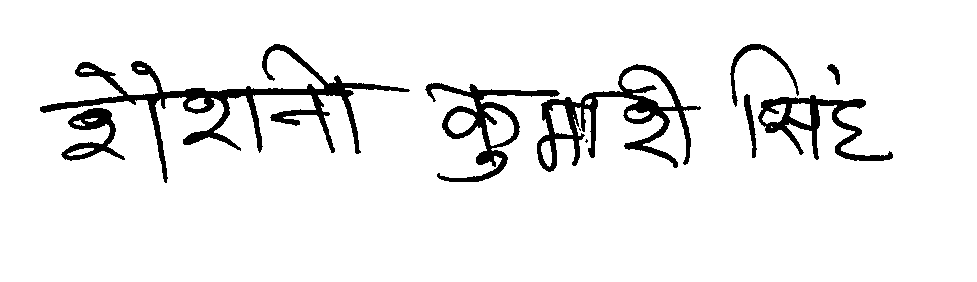 रोशनी कुमारी सिंह